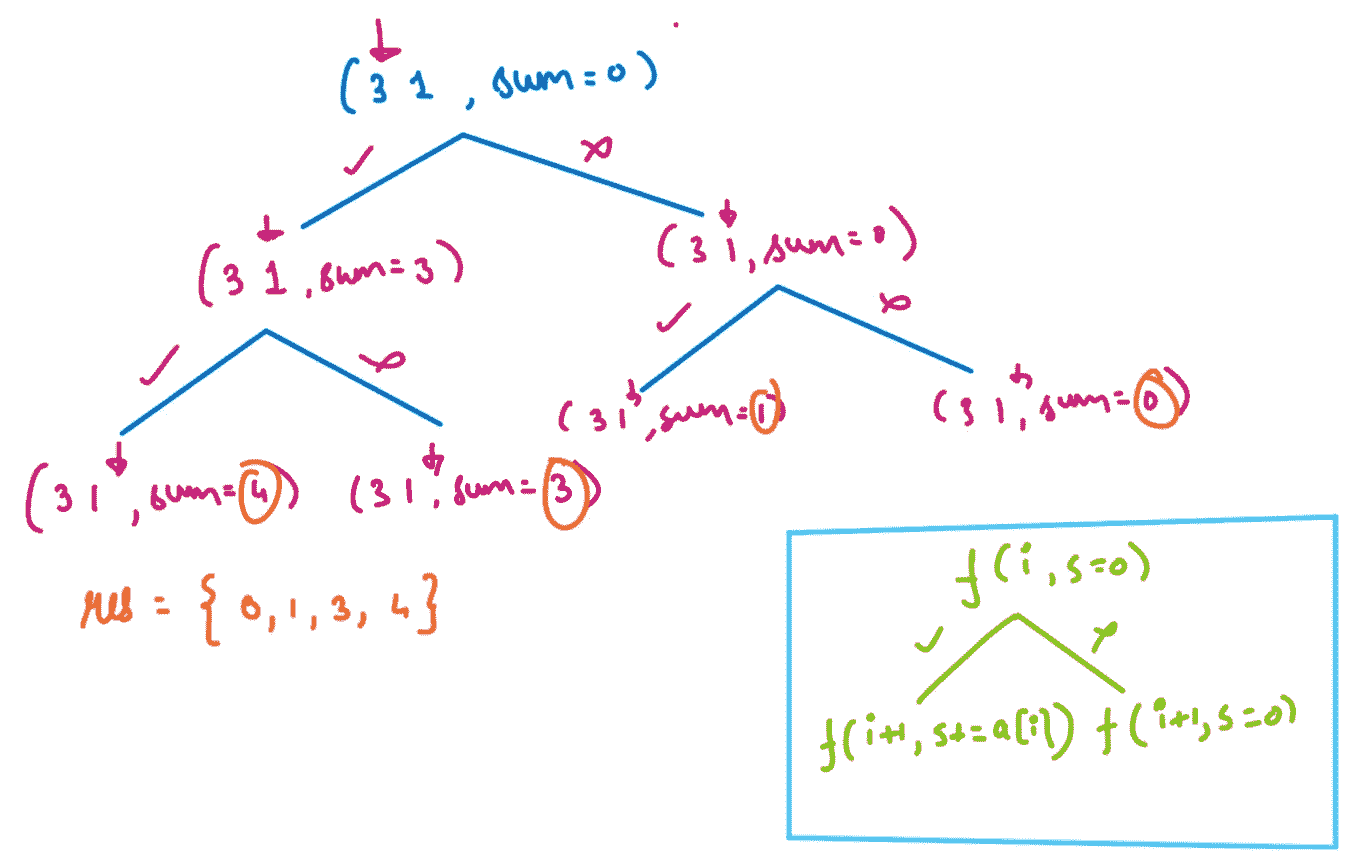 (3 1 , sum=0)
(3 1, sum=0)
(3 1 , sum=3)
(3 1 , sum=1)
(3 1, sum=0)
(3 1 , sum=4)
(3 1 , sum=3)
res = { 0, 1, 3, 4 }
f(i, s=0)
f(i+1, s+=a[i]) f(i+1, s=0)